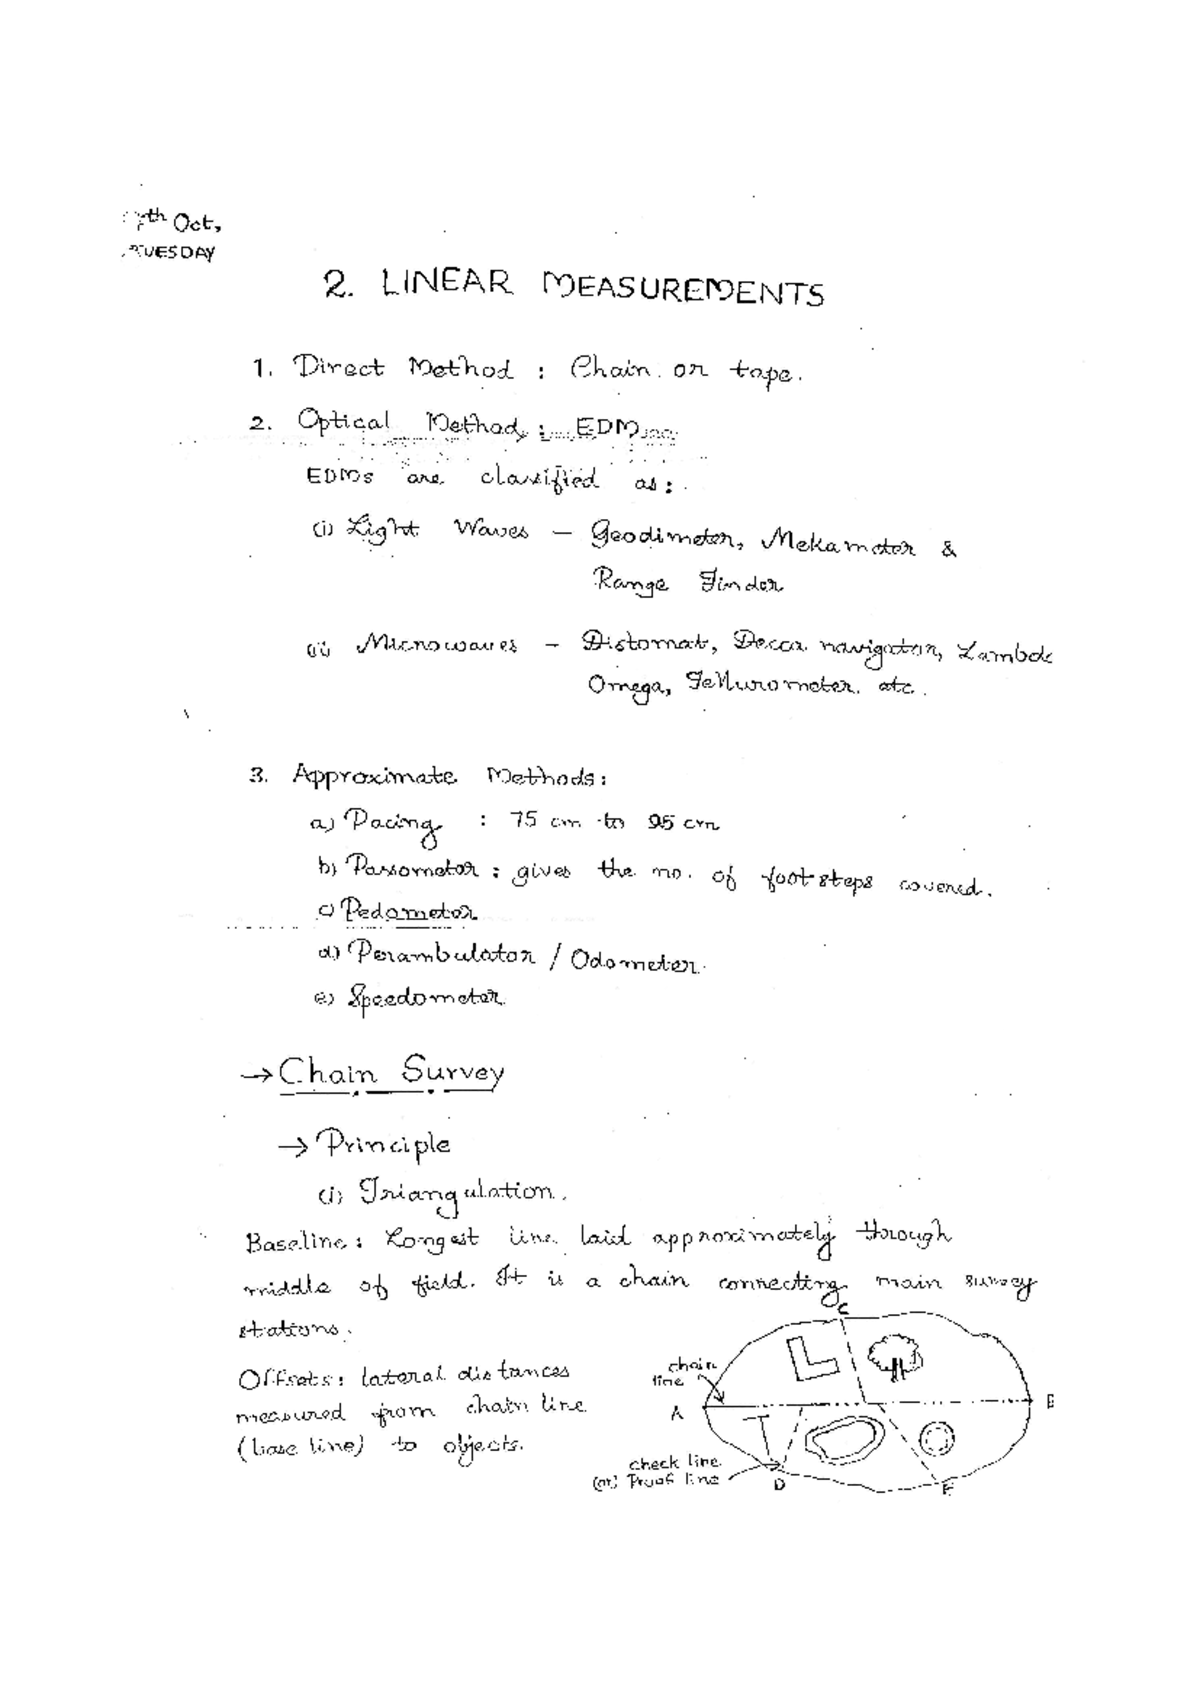 7th Oct,
TUESDAY
2. LINEAR MEASUREMENTS
1. Direct Method : Chain or tape.
2. Optical Method : EDM
EDMs are classified as :
(i) Light Waves – Geodimeter, Mekameter &
Range Finder
(ii) Microwaves – Distomat, Decca navigator, Lambda
Omega, Tellurometer etc.
3. Approximate Methods :
a) Pacing : 75 cm to 95 cm
b) Passometer : gives the no. of footsteps covered.
c) Pedometer
d) Perambulator / Odometer.
e) Speedometer
→ Chain Survey
→ Principle
(i) Triangulation.
Baseline : Longest line laid approximately through
middle of field. It is a chain connecting main survey
stations.
Offsets : lateral distances
measured from chain line
(base line) to objects.
C
chain
line
A
B
check line
(or) Proof line
D
E